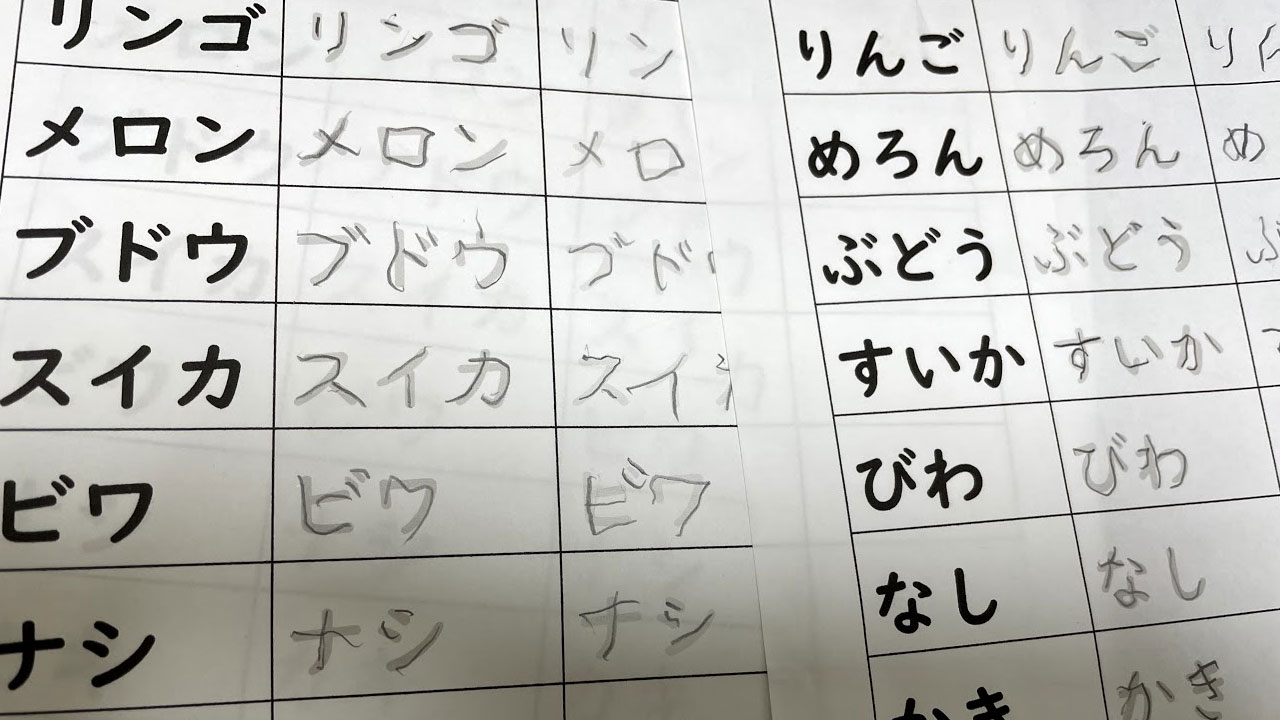 リンゴ リンゴ リン
メロン メロン メロ
ブドウ ブドウ ブド
スイカ スイカ スイ
ビワ ビワ ビワ
ナシ ナシ ナシ
りんご りんご り
めろん めろん め
ぶどう ぶどう ぶ
すいか すいか
びわ びわ
なし なし
かき かき